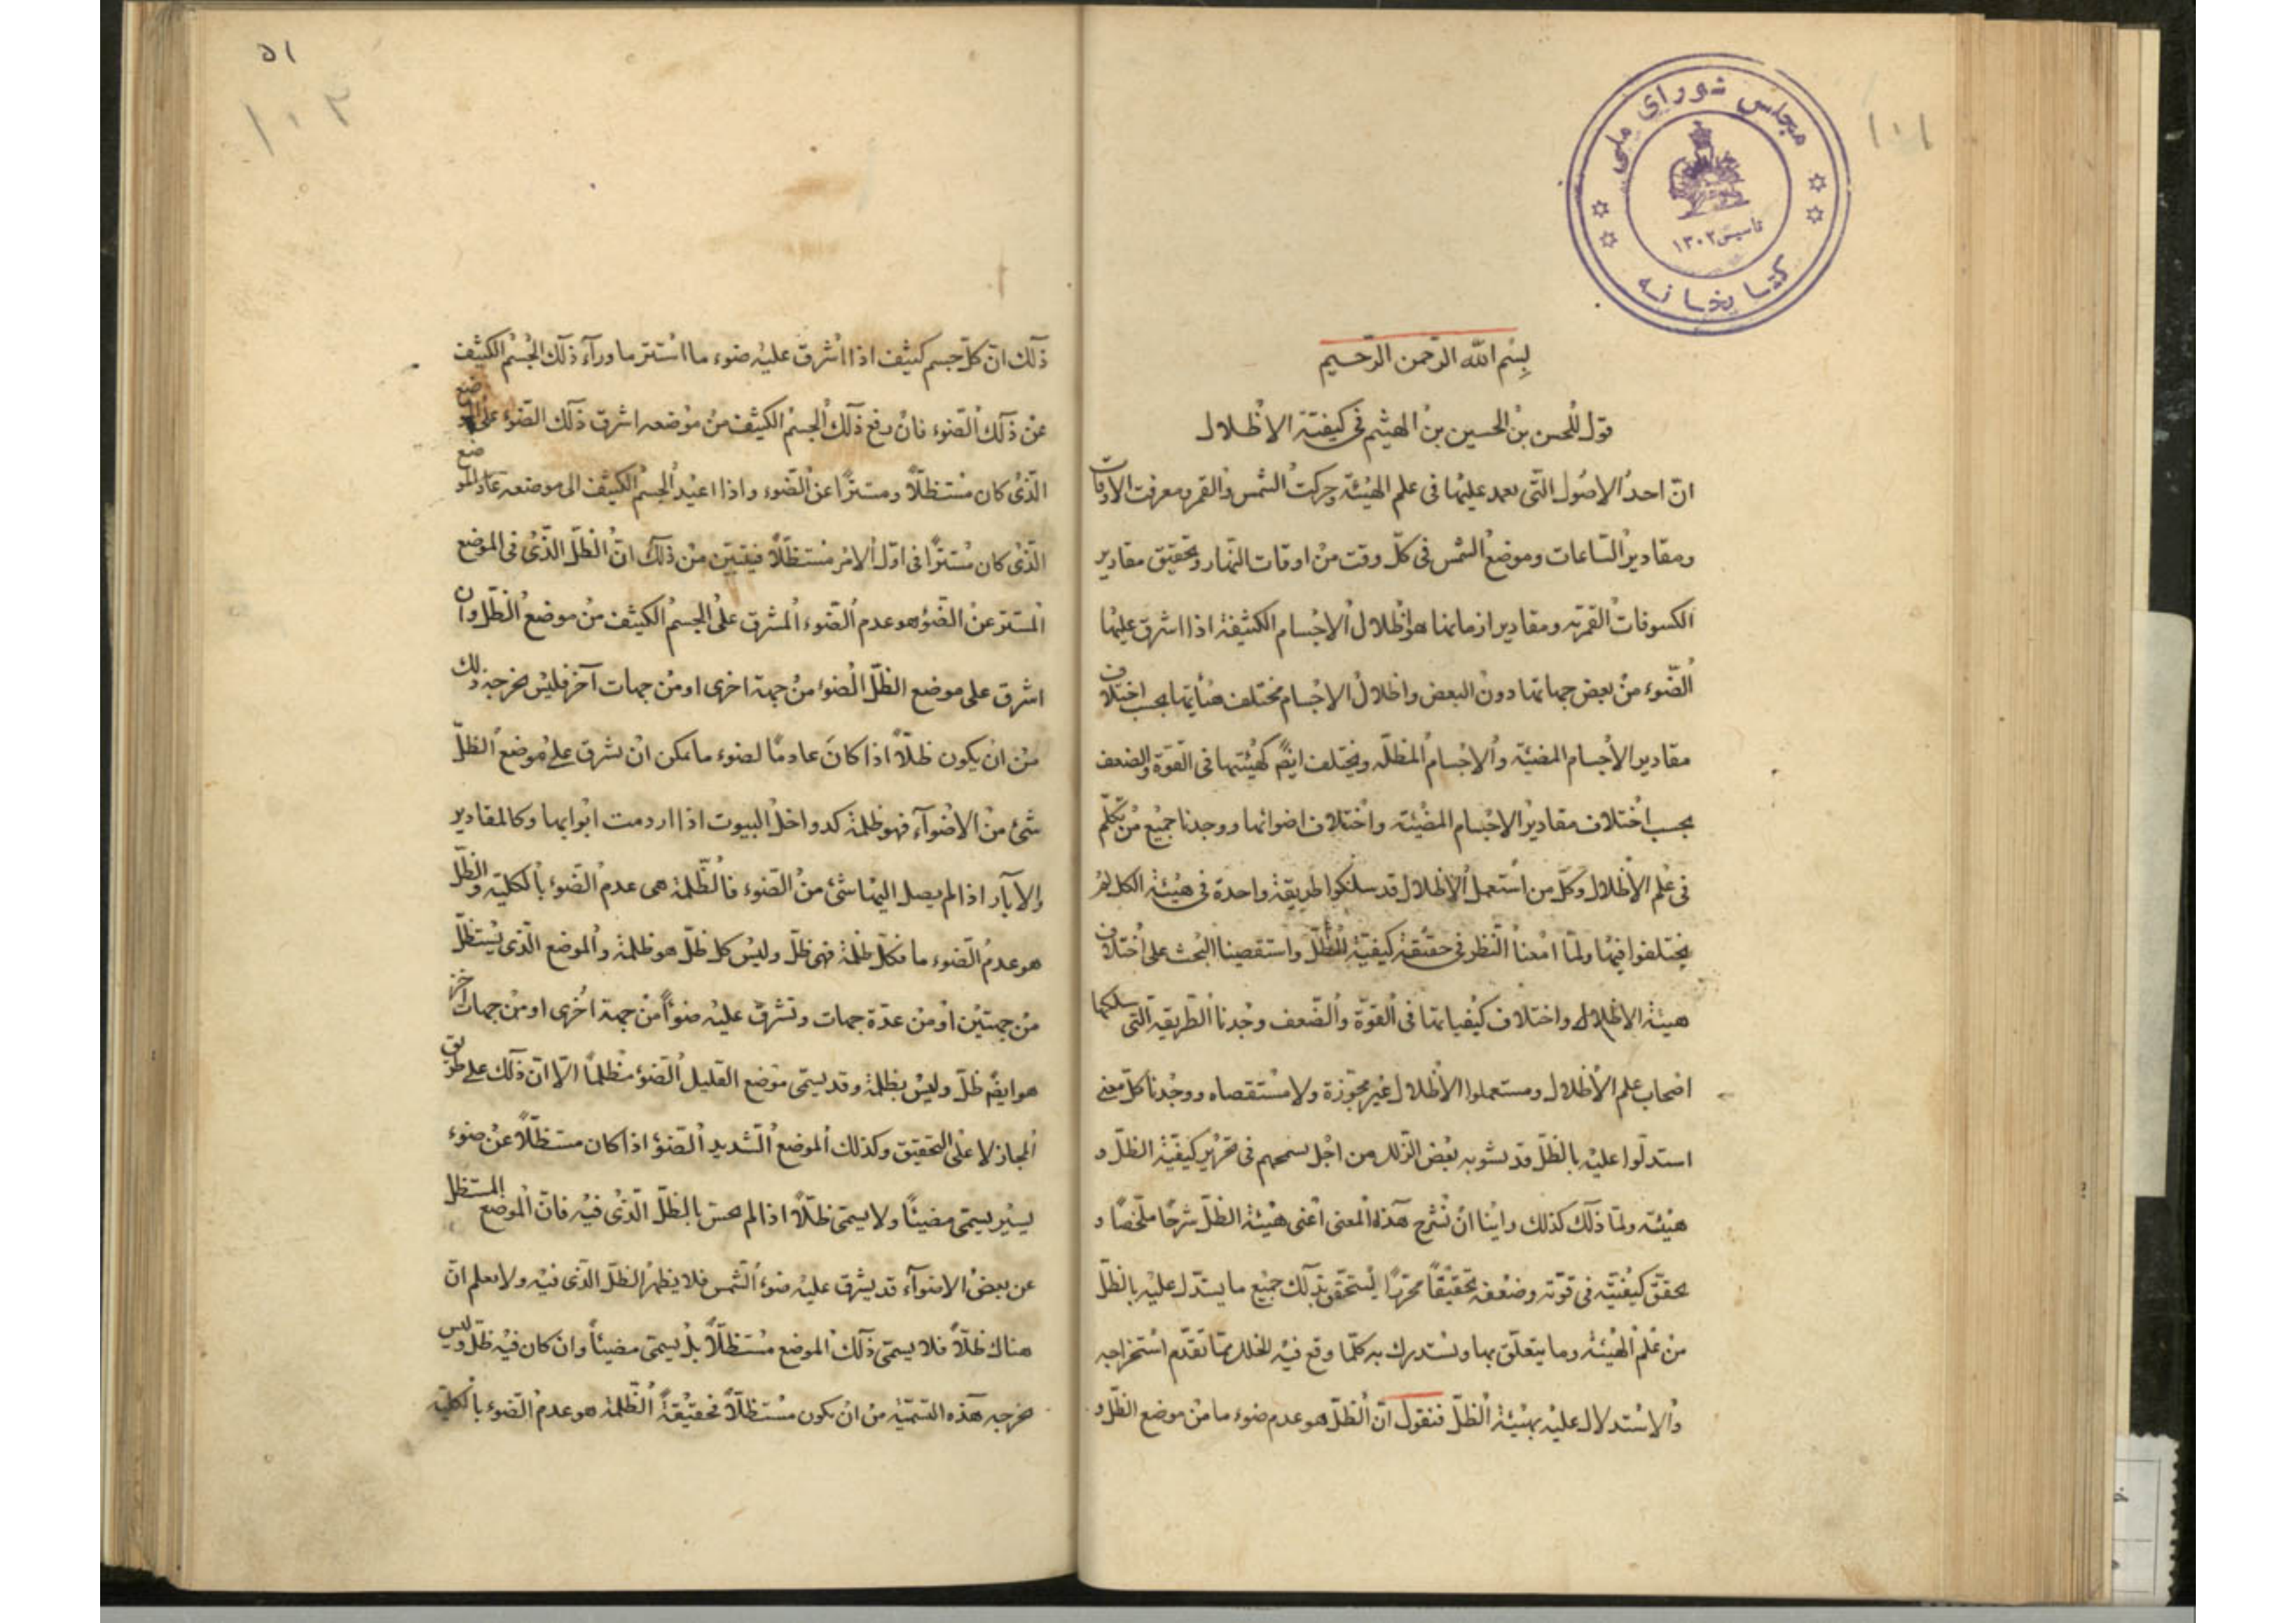 ١٠١
مجلس شورای ملی
تأسیس ١٣٠٢
کتابخانه
بسم الله الرّحمن الرّحیم
قول للحسن بن الحسین بن الهیثم فی کیفیّة الاظلال
انّ احد الاصول الّتی یعمد علیها فی علم الهیئة وحرکت الشمس والقمر ومعرفت الاوقات
ومقادیر السّاعات وموضع الشمس فی کلّ وقت من اوقات النّهار وتحقیق مقادیر
الکسوفات القمریّه ومقادیر ازمانها هو اظلال الاجسام الکثیفة اذا اشرق علیها
الضّوء من بعض جهاتها دون البعض واظلال الاجسام مختلف هیأیتها بحسب اختلاف
مقادیر الأجسام المضیئة والاجسام المظلّه ویختلف ایضً کهیئیتها فی القوّة والضعف
بحسب اختلاف مقادیر الاجسام المضیئة واختلاف اضوائها ووجدنا جمیع من تکلّم
فی علم الأظلال وکلّ من استعمل الاظلال قد سلکوا طریقة واحدة فی هیئة الکل لم
یختلفوا فیها ولمّا امعنا النّظر فی حقیقة کیفیّة الظّل واستقصینا البحث علی اختلاف
هیئة الاظلال واختلاف کیفیاتها فی القوّة والضّعف وجدنا الطّریقه الّتی سلکها
اصحاب علم الأظلال ومستعملوا الاظلال غیر محرّزة ولا مستقصاه ووجدنا کلّ معنی
استدلّوا علیه بالظلّ قد یشوبه بعض الزّلل من اجل تسمحهم فی تحریر کیفیّة الظلّ و
هیئته ولمّا ذلک کذلک راینا ان نشرح هذا المعنی اعنی هیئة الظلّ شرحًا ملخّصًا و
نحقّق کیفیّته فی قوّته وضعفه تحقیقًا محرّرًا لیستحقّق بذلک جمیع ما یستدّل علیه بالظلّ
من علم الهیئة وما یتعلّق بها ونستدرک به کلّما وقع فیه الخلل ممّا تقدّم استخراجه
والاستدلال علیه بهیئة الظلّ فنقول انّ الظلّ هو عدم ضوء ما من موضع الظلّ و
٥١
١٠٢
ذلک انّ کلّ جسم کثیف اذا اشرق علیه ضوء ما استتر ما ورآء ذلک الجسم الکثیف
عن ذلک الضّوء فان رفع ذلک الجسم الکثیف من موضعه اشرق ذلک الضّوء علی الموضع
الّذی کان مستظلّاً ومستترًا عن الضّوء واذا اعید الجسم الکثیف الی موضعه عاد الموضع
الّذی کان مستترًا فی اوّل الامر مستظلّاً فیتبیّن من ذلک انّ الظلّ الذّی فی الموضع
المستتر عن الضّوء هو عدم الضّوء المشرق علی الجسم الکثیف من موضع الظلّ وان
اشرق علی موضع الظلّ الضوء من جهة اخری او من جهات آخر فلیس یخرجه ذلک
من ان یکون ظلّاً اذا کان عادمًا لضوء ما یمکن ان یشرق علی موضع الظلّ
شئ من الاضوآء فهو ظلمة کدواخل البیوت اذا اردمت ابوابها وکالمقادیر
والآبار اذا لم یصل الیها شئ من الضّوء فالظّلمة هی عدم الضّوء بالکلیّة والظّل
هو عدم الضّوء ما فکلّ ظلمة فهی ظلّ ولیس کل ظلّ هو ظلمة والموضع الّذی یستظلّ
من جهتین او من عدّة جهات وتشرق علیه ضوءاً من جهة اخری او من جهات اخر
هو ایضً ظلّ ولیس بظلمة وقد یسمّی موضع القلیل الضّوء مظلمًا الّا انّ ذلک علی طریق
المجاز لا علی التحقیق وکذلک الموضع الشّدید الضّوء اذا کان مستظلّاً عن ضوء
یسیر یسمّی مضیئًا ولا یسمّی ظلّاً اذا لم یحسّ بالظلّ الذّی فیه فانّ الموضع المستظل
عن بعض الاضوآء قد یشرق علیه ضوء الشّمس فلا یظهر الظلّ الذّی فیه ولا یعلم انّ
هناک ظلّاً فلا یسمّی ذلک الموضع مستظلّاً بل یسمّی مضیئاً وان کان فیه ظلّ ولیس
یخرجه هذه التسمیّة من ان یکون مستظلّاً فحقیقة الظّلمة هو عدم الضّوء بالکلیّة